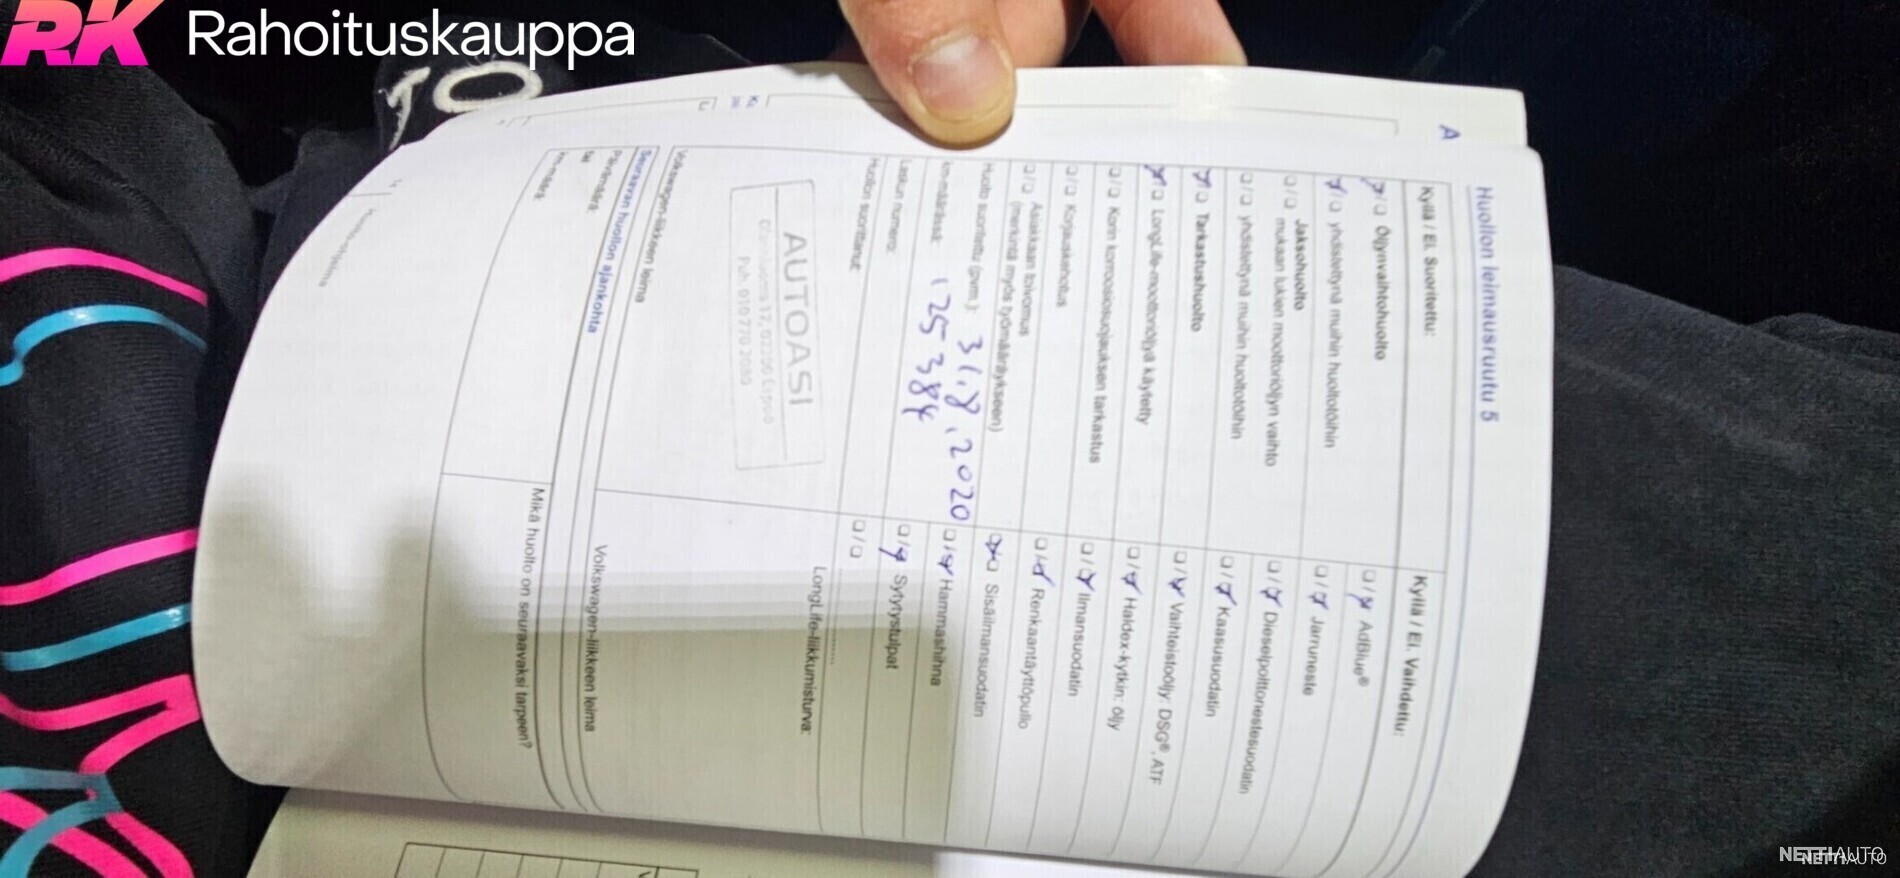 RK Rahoituskauppa
TO
A
Huollon leimausruutu 5
Kyllä / Ei. Suoritettu:
Öljynvaihtohuolto
yhdistettynä muihin huoltotöihin
Jaksohuolto
mukaan lukien moottoriöljyn vaihto
yhdistettynä muihin huoltotöihin
Tarkastushuolto
LongLife-moottoriöljyä käytetty
Korin korroosiosuojauksen tarkastus
Korjauskehotus
Asiakkaan toivomus
(merkintä myös työmääräykseen)
Huolto suoritettu (pvm.): 31.8.2020
km-määrässä: 125384
Laskun numero:
Huollon suorittanut:
AUTOASI
Puh. 010 770 2080
Volkswagen-liikkeen leima
Kyllä / Ei. Vaihdettu:
AdBlue®
Jarruneste
Dieselpolttonestesuodatin
Kaasusuodatin
Vaihteistoöljy: DSG®, ATF
Haldex-kytkin: öljy
Ilmansuodatin
Renkaantäyttöpullo
Sisäilmansuodatin
Hammashihna
Sytytystulpat
LongLife-liikkumisturva:
Volkswagen-liikkeen leima
Seuraavan huollon ajankohta
Päivämäärä:
tai
Km-määrä:
Mikä huolto on seuraavaksi tarpeen?
NETTIAUTO
NETTIAUTO